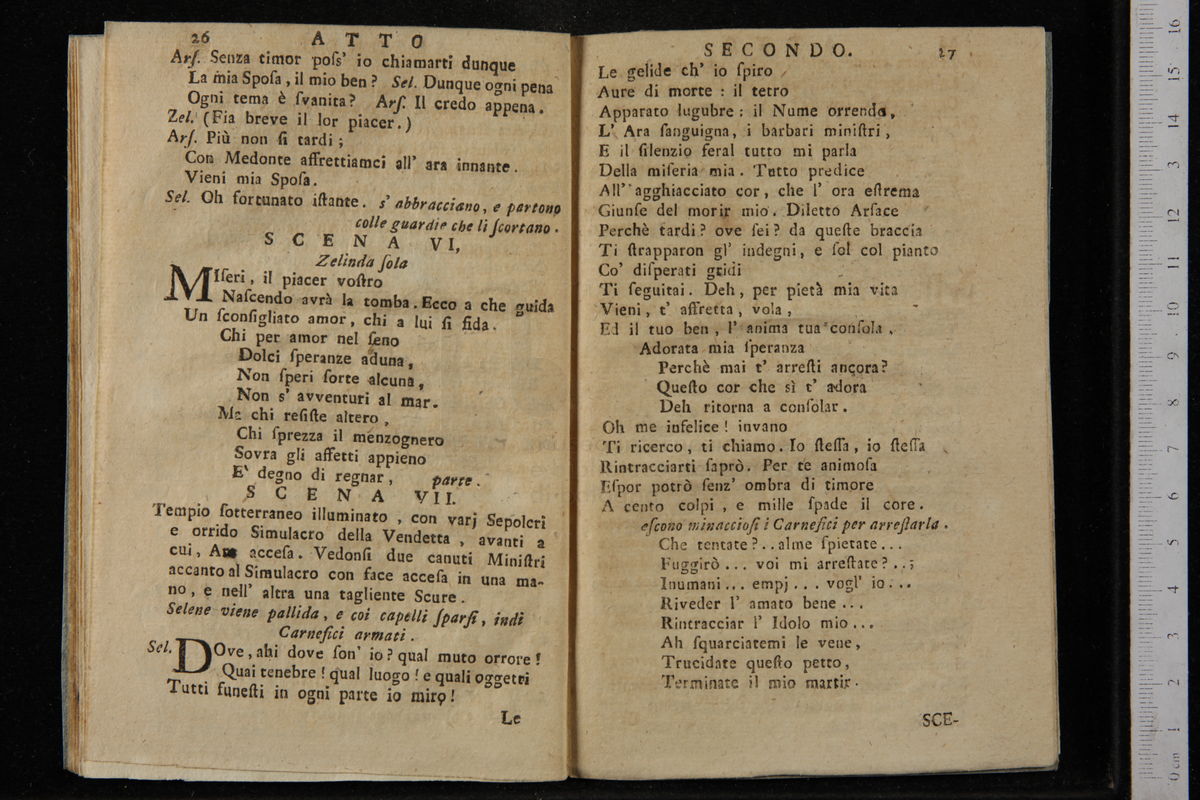 26 ATTO
Arſ. Senza timor poſs' io chiamarti dunque
La mia Spoſa, il mio ben? Sel. Dunque ogni pena
Ogni tema è ſvanita? Arſ. Il credo appena.
Zel. (Fia breve il lor piacer.)
Arſ. Più non ſi tardi;
Con Medonte affrettiamci all' ara innante.
Vieni mia Spoſa.
Sel. Oh fortunato iſtante. s' abbracciano, e partono
colle guardie che li ſcortano.
SCENA VI,
Zelinda ſola
MIſeri, il piacer voſtro
Naſcendo avrà la tomba. Ecco a che guida
Un ſconſigliato amor, chi a lui ſi fida.
Chi per amor nel ſeno
Dolci ſperanze aduna,
Non ſperi ſorte alcuna,
Non s' avventuri al mar.
Ma chi reſiſte altero,
Chi ſprezza il menzognero
Sovra gli affetti appieno
E' degno di regnar, parte.
SCENA VII.
Tempio ſotterraneo illuminato, con varj Sepolcri
e orrido Simulacro della Vendetta, avanti a
cui, Ara acceſa. Vedonſi due canuti Miniſtri
accanto al Simulacro con face acceſa in una ma-
no, e nell' altra una tagliente Scure.
Selene viene pallida, e coi capelli ſparſi, indi
Carnefici armati.
Sel. DOve, ahi dove ſon' io? qual muto orrore!
Quai tenebre! qual luogo! e quali oggetti
Tutti funeſti in ogni parte io miro!
Le
SECONDO. 27
Le gelide ch' io ſpiro
Aure di morte: il tetro
Apparato lugubre: il Nume orrendo,
L' Ara ſanguigna, i barbari miniſtri,
E il ſilenzio feral tutto mi parla
Della miſeria mia. Tutto predice
All' agghiacciato cor, che l' ora eſtrema
Giunſe del morir mio. Diletto Arſace
Perchè tardi? ove ſei? da queſte braccia
Ti ſtrapparon gl' indegni, e ſol col pianto
Co' diſperati gridi
Ti ſeguitai. Deh, per pietà mia vita
Vieni, t' affretta, vola,
Ed il tuo ben, l' anima tua conſola,
Adorata mia ſperanza
Perchè mai t' arreſti ancora?
Queſto cor che sì t' adora
Deh ritorna a conſolar.
Oh me infelice! invano
Ti ricerco, ti chiamo. Io ſteſſa, io ſteſſa
Rintracciarti ſaprò. Per te animoſa
Eſpor potrò ſenz' ombra di timore
A cento colpi, e mille ſpade il core.
eſcono minaccioſi i Carnefici per arreſtarla.
Che tentate?.. alme ſpietate...
Fuggirò... voi mi arreſtate?..;
Inumani... empj... vogl' io...
Riveder l' amato bene...
Rintracciar l' Idolo mio...
Ah ſquarciatemi le vene,
Trucidate queſto petto,
Terminate il mio martir.
SCE-
0 cm 1 2 3 4 5 6 7 8 9 10 11 12 13 14 15 16